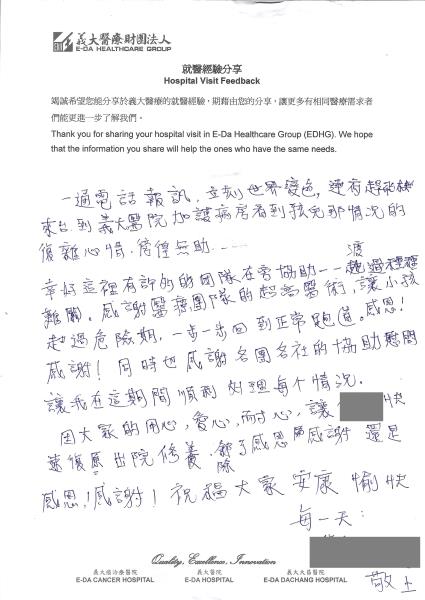 義大醫療財團法人
E-DA HEALTHCARE GROUP
就醫經驗分享
Hospital Visit Feedback
竭誠希望您能分享於義大醫療的就醫經驗，期藉由您的分享，讓更多有相同醫療需求者
們能更進一步了解我們。
Thank you for sharing your hospital visit in E-Da Healthcare Group (EDHG). We hope
that the information you share will help the ones who have the same needs.
一通電話報訊，立刻世界變色，連夜趕飛機
來台到義大醫院加護病房看到孩兒那情況的
復雜心情，徬徨無助……
幸好這裡有許的的團隊在旁協助——渡過種種
難關。感謝醫療團隊的超高醫術，讓小孩
越過危險期，一步一步回到正常跑道。感恩！
感謝！同時也感謝各團各社的協助慰問
讓我在這期間順利処理每个情況。
因大家的用心，愛心，耐心，讓 快
速復原出院修養，除了感恩感謝還是
感恩！感謝！祝福大家安康愉快
每一天：
敬上
Quality, Excellence, Innovation
義大癌治療醫院 義大醫院 義大大昌醫院
E-DA CANCER HOSPITAL E-DA HOSPITAL E-DA DACHANG HOSPITAL